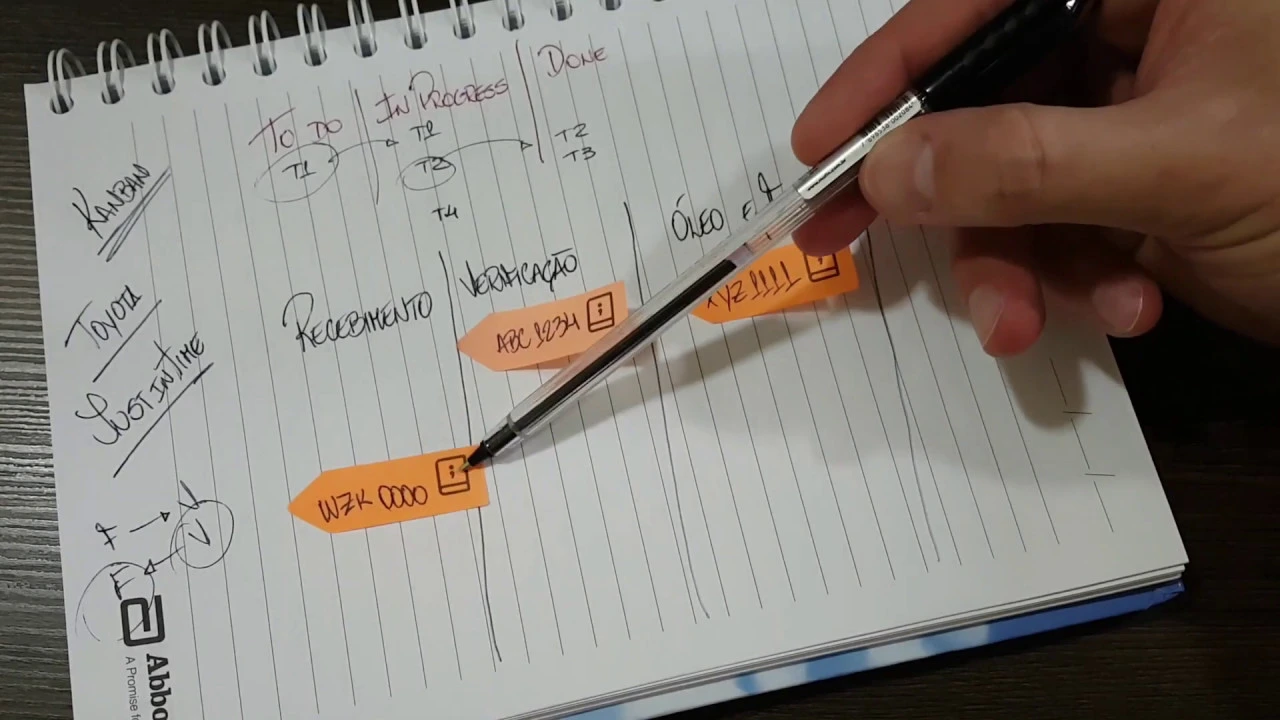 TO DO
IN PROGRESS
DONE
T1
T1
T2
T2
T3
T4
KANBAN
TOYOTA
JUST IN TIME
RECEBIMENTO
VERIFICAÇÃO
ÓLEO E
ABC 1234
XYZ 1111
WZK 0000
V
Abbo
A Promise fo